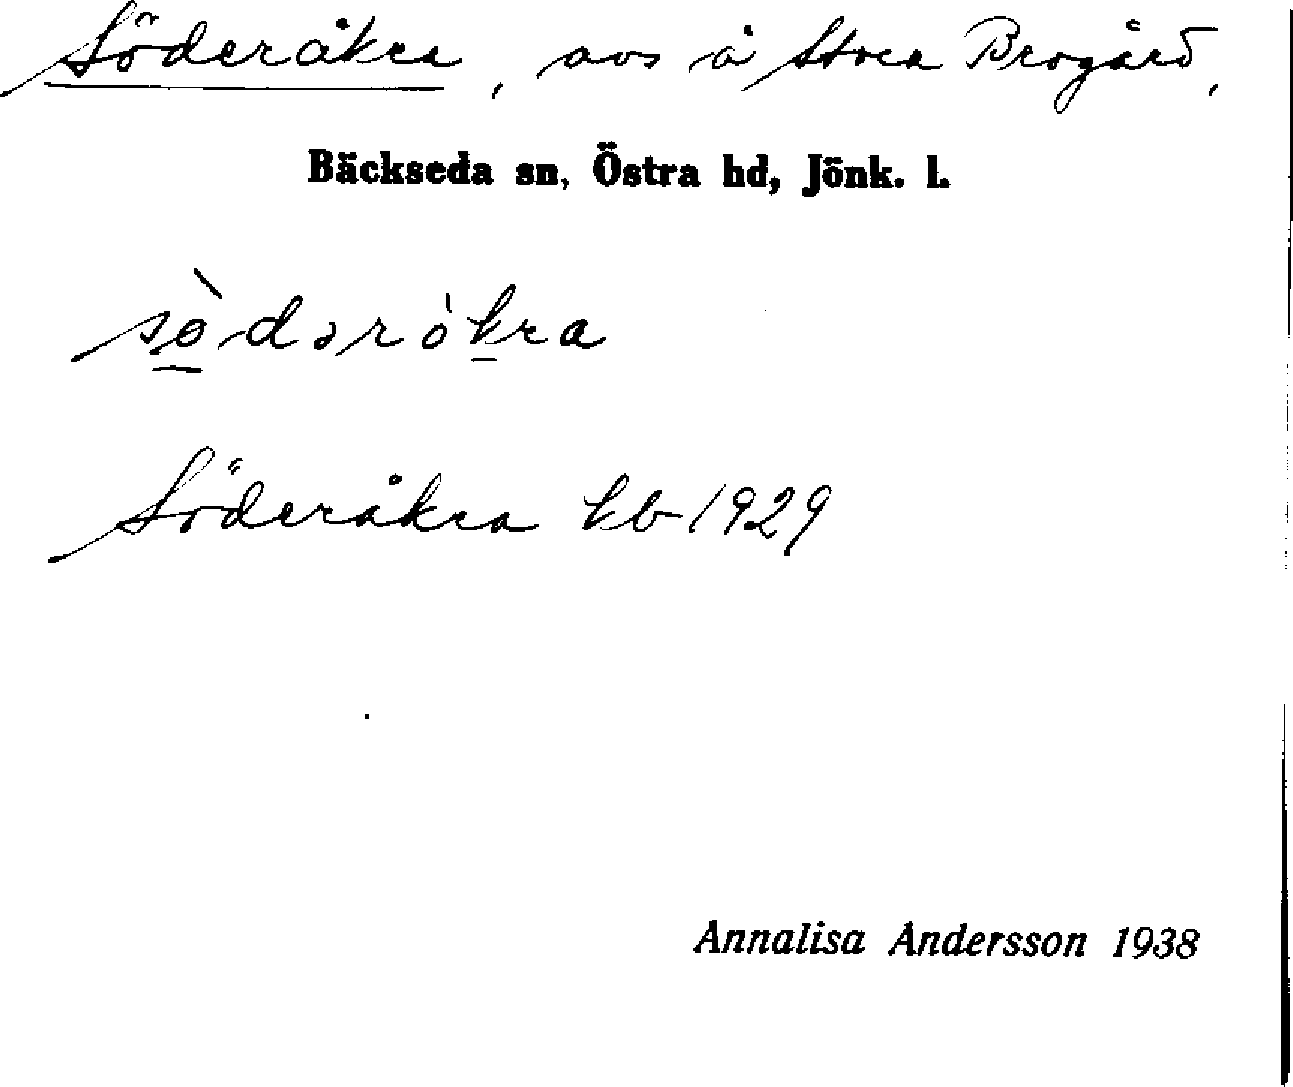 Söderåkra, avs å Stora Brogård,
Bäckseda sn, Östra hd, Jönk. l.
sö̀dərókra
Söderåkra kb 1929
Annalisa Andersson 1938